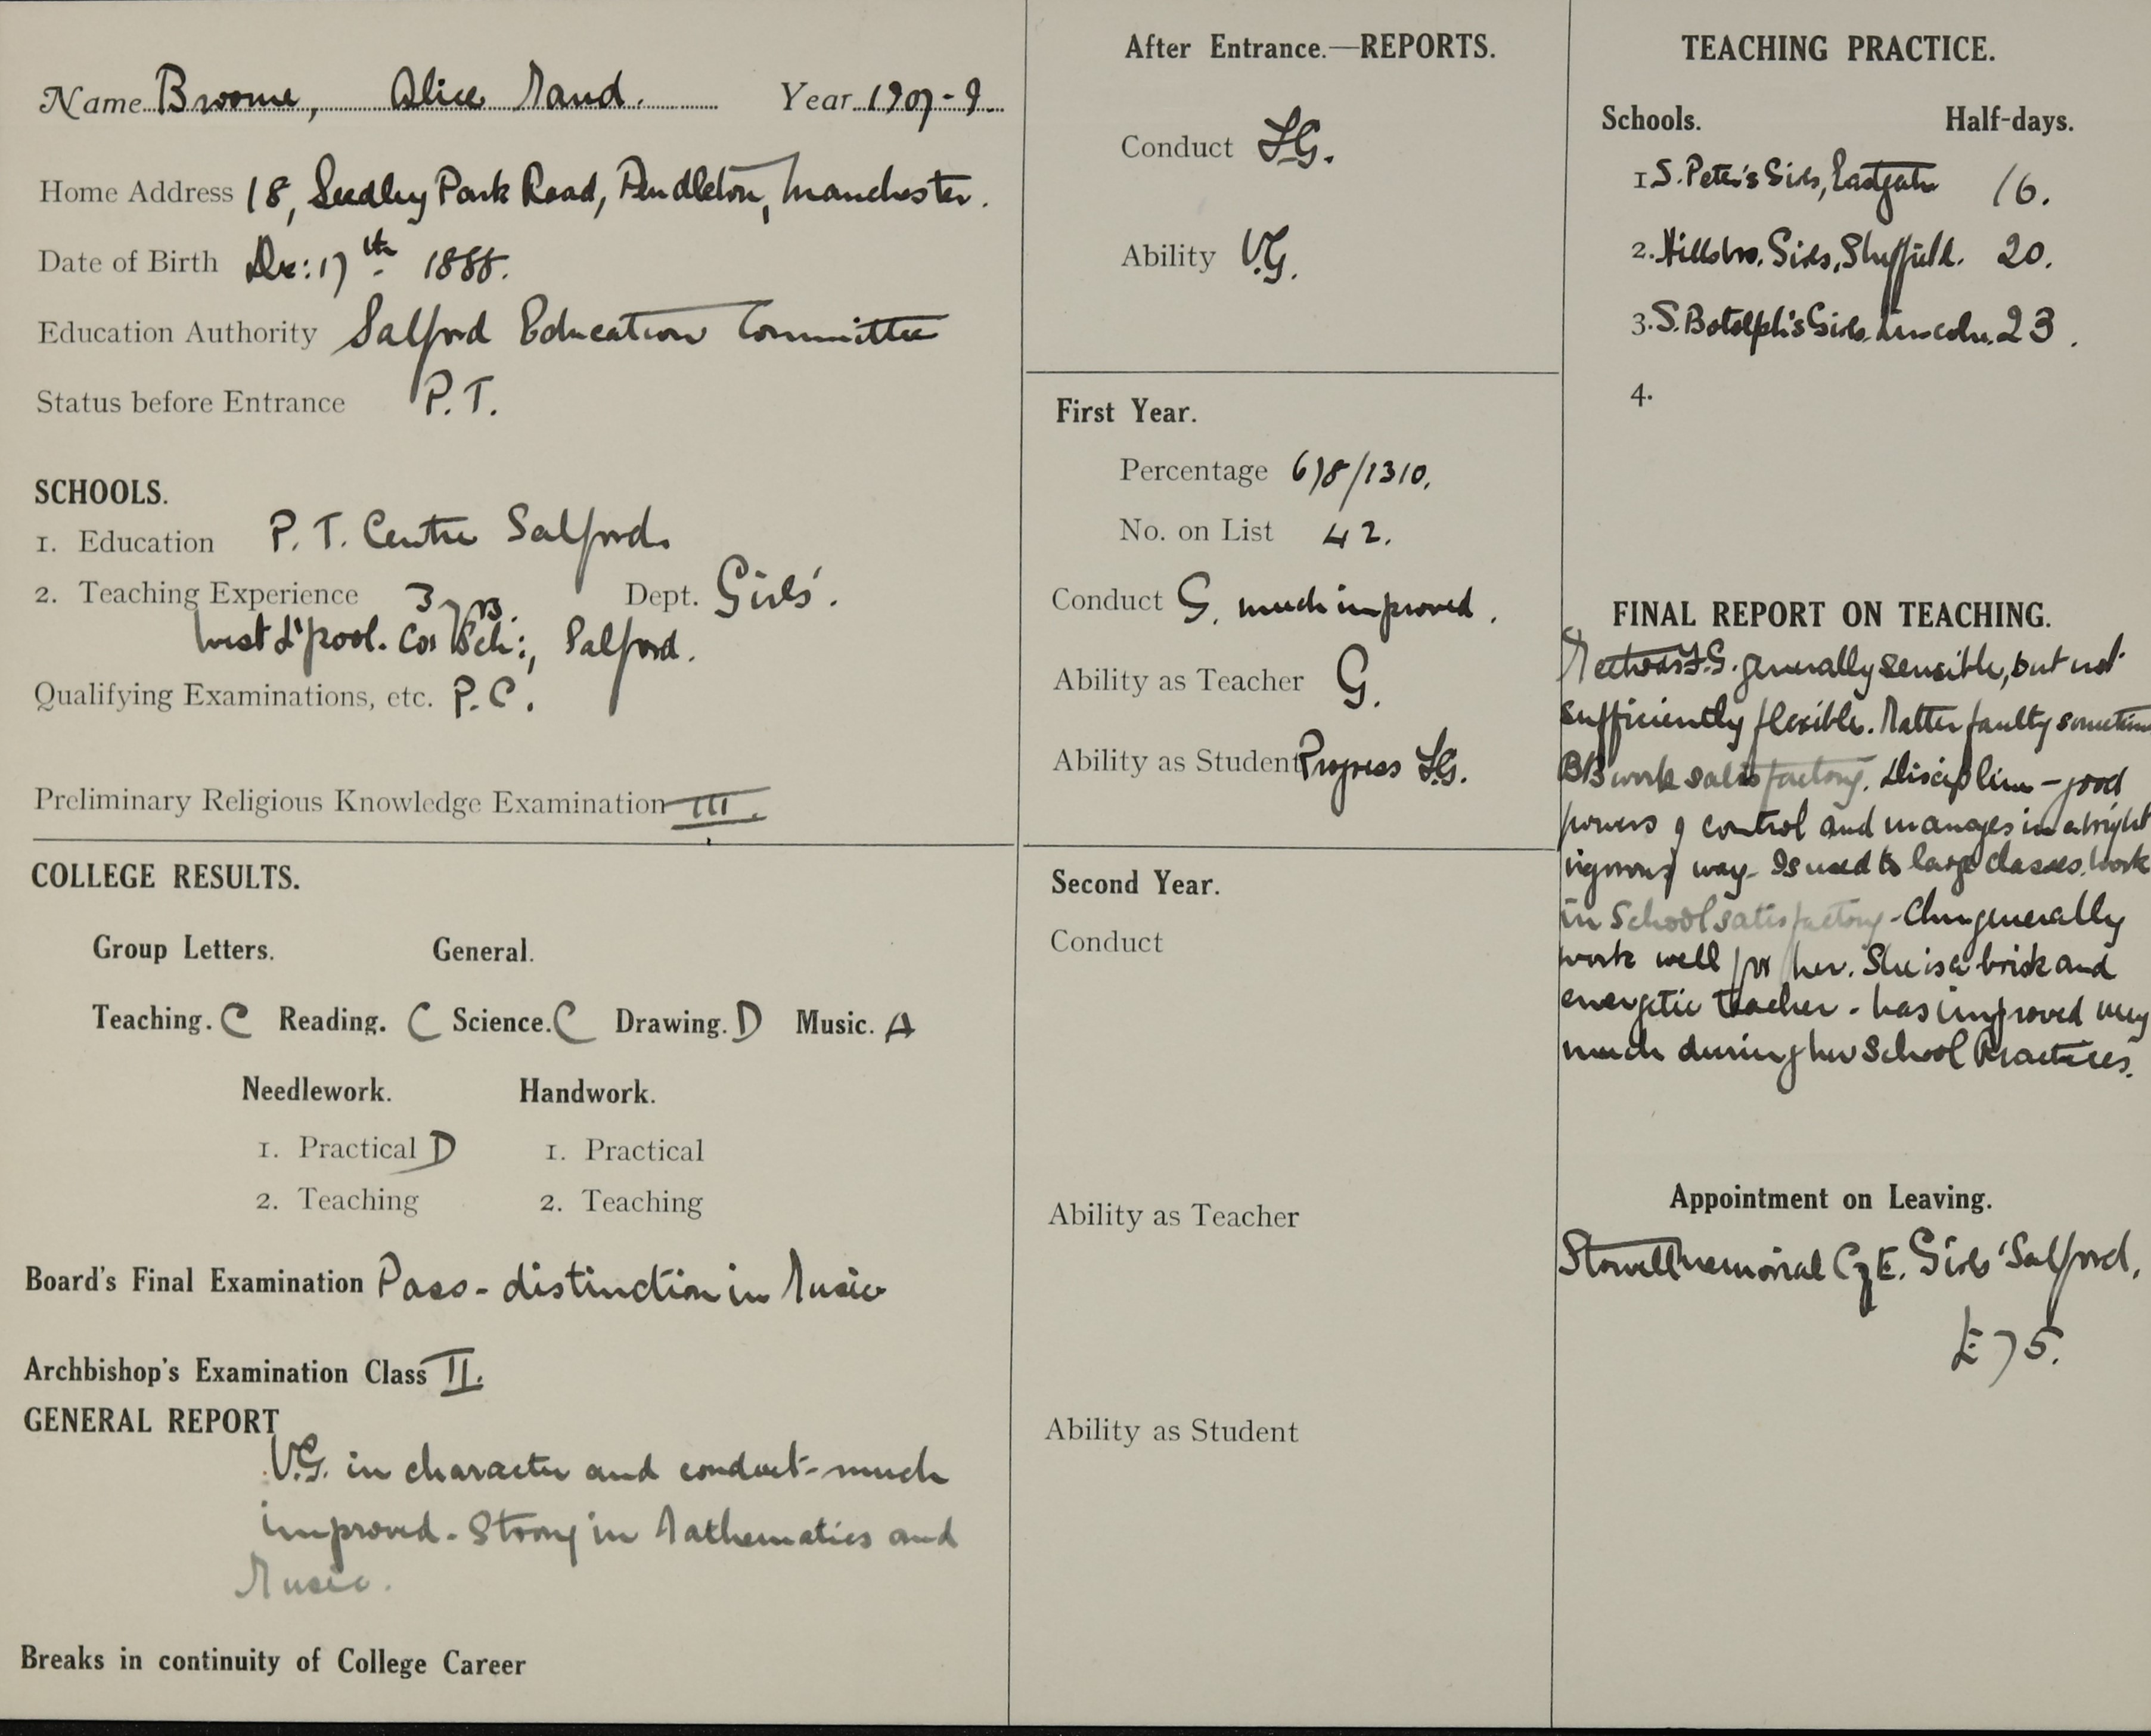 Name Broome, Alice Maud. Year 1907-9
Home Address 18, Seedley Park Road, Pendleton, Manchester.
Date of Birth Dec: 17th 1888.
Education Authority Salford Education Committee
Status before Entrance P.T.
SCHOOLS.
1. Education P. T. Centre Salford.
2. Teaching Experience 3 yrs. Dept. Girls'.
West L'pool. Co: Sch:, Salford.
Qualifying Examinations, etc. P.C.
Preliminary Religious Knowledge Examination III.
COLLEGE RESULTS.
Group Letters. General.
Teaching. C Reading. C Science. C Drawing. D Music. A
Needlework. Handwork.
1. Practical D 1. Practical
2. Teaching 2. Teaching
Board's Final Examination Pass - distinction in Music
Archbishop's Examination Class II.
GENERAL REPORT
V.G. in character and conduct - much
improved - Strong in Mathematics and
Music.
Breaks in continuity of College Career
After Entrance.—REPORTS.
Conduct F.G.
Ability V.G.
First Year.
Percentage 678/1310.
No. on List 42.
Conduct G. much improved.
Ability as Teacher G.
Ability as Student Progress F.G.
Second Year.
Conduct
Ability as Teacher
Ability as Student
TEACHING PRACTICE.
Schools. Half-days.
1 S. Peter's Girls, Eastgate 16.
2. Hillsbro. Girls, Sheffield. 20.
3. S. Botolph's Girls, Lincoln. 23.
4.
FINAL REPORT ON TEACHING.
Methods F.G. generally sensible, but not
sufficiently flexible. Matter faulty sometimes
BB work satisfactory. Discipline - good
powers of control and manages in a bright
vigorous way. Is used to large classes. Work
in School satisfactory - Chn generally
work well for her. She is a brisk and
energetic teacher - has improved very
much during her School Practices.
Appointment on Leaving.
Stowell Memorial C of E. Girls' Salford.
£75.